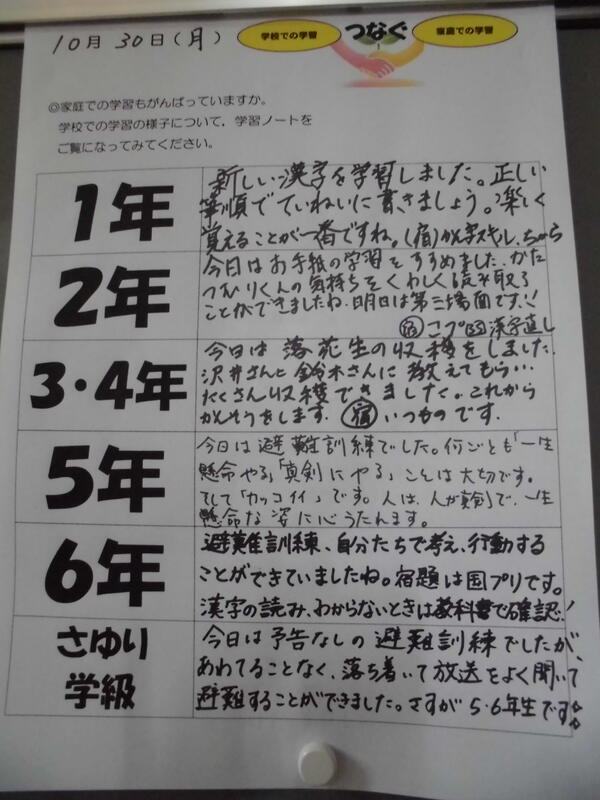 10月30日(月)
学校での学習
つなぐ
家庭での学習
◎家庭での学習もがんばっていますか。
学校での学習の様子について、学習ノートを
ご覧になってみてください。
1年
新しい漢字を学習しました。正しい
筆順でていねいに書きましょう。楽しく
覚えることが一番ですね。(宿)かん字スキル、ちから
2年
今日はお手紙の学習をすすめました。かた
つむりくんの気持ちをくわしく読み取る
ことができましたね。明日は第三場面です!!
宿 こプ 漢字直し
3・4年
今日は落花生の収穫をしました。
沢井さんと鈴木さんに教えてもらい…
たくさん収穫できました。これから
かんそうをします。宿 いつものです。
5年
今日は避難訓練でした。何ごとも「一生
懸命やる」「真剣にやる」ことは大切です。
そして「カッコイイ」です。人は、人が真剣で、一生
懸命な姿に心うたれます。
6年
避難訓練、自分たちで考え、行動する
ことができていましたね。宿題は国プリです。
漢字の読み、わからないときは教科書で確認!
さゆり
学級
今日は予告なしの避難訓練でしたが、
あわてることなく、落ち着いて放送をよく聞いて
避難することができました。さすが5・6年生です